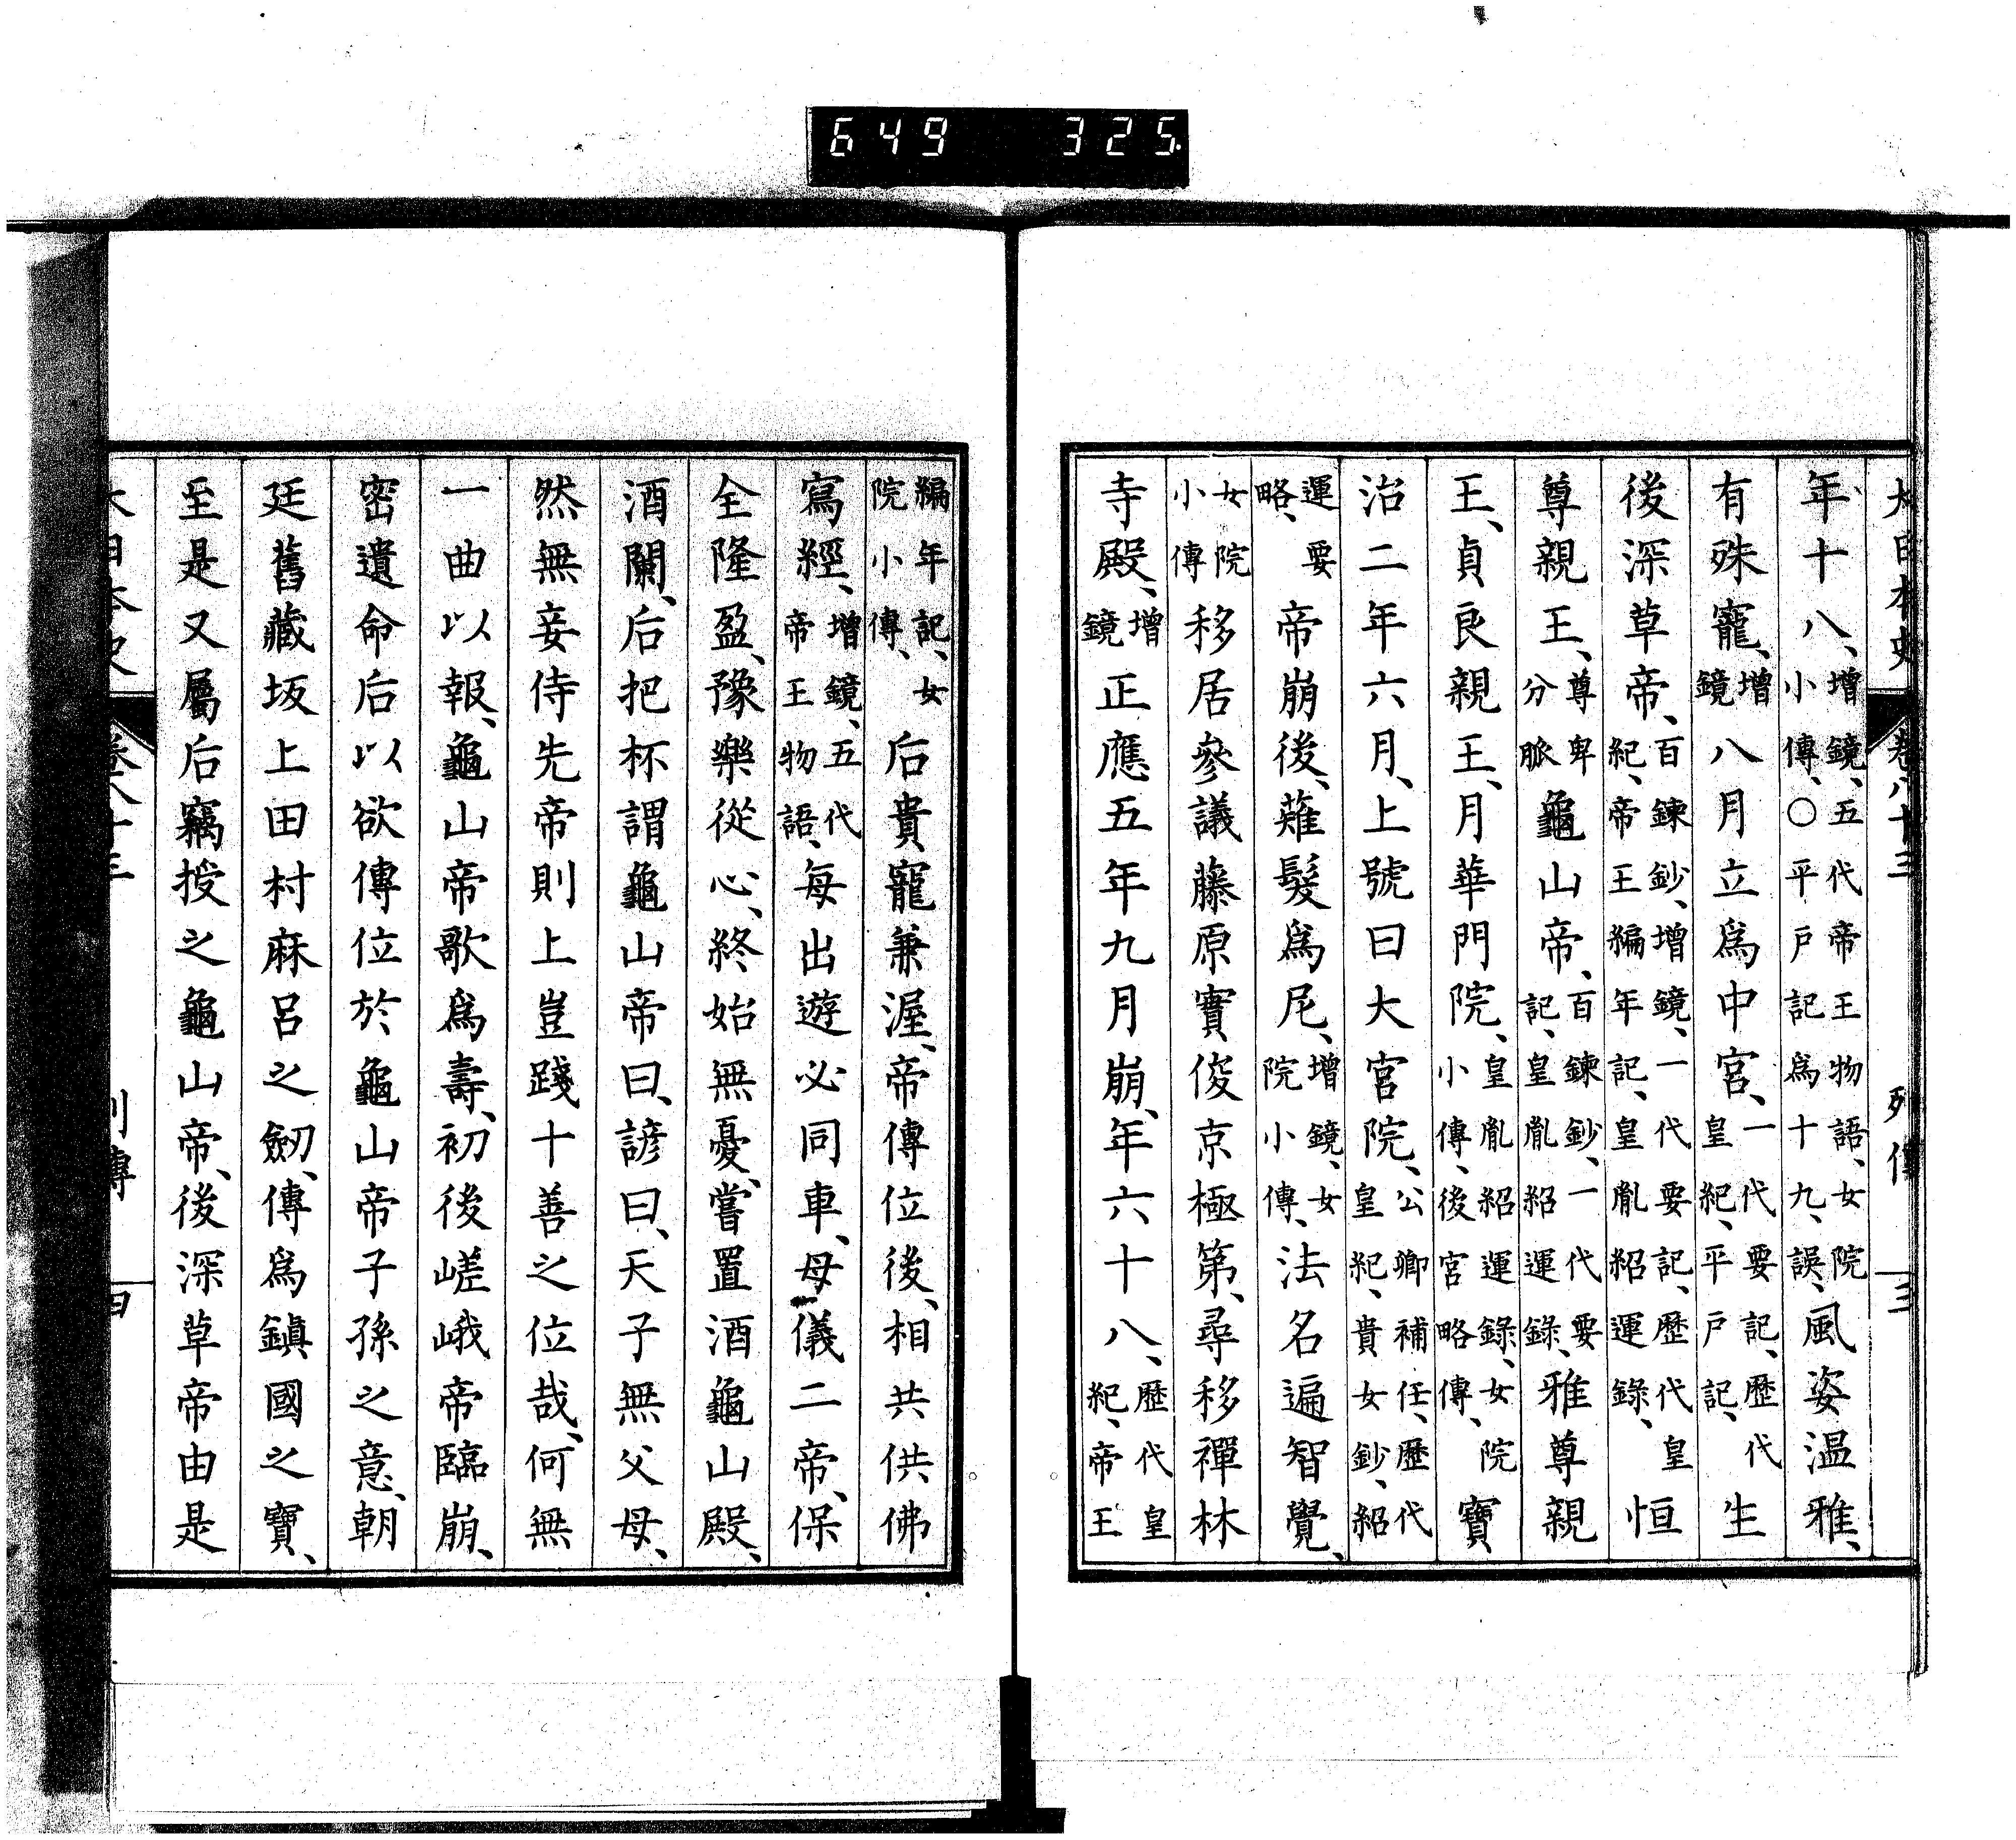 649 325.
大日本史 卷八十三 列傳 三
年十八、增鏡、五代帝王物語、女院小傳、○平戸記爲十九、誤、風姿温雅、
有殊寵、增鏡八月立爲中宮、一代要記、歷代皇紀、平戸記、生
後深草帝、百鍊鈔、增鏡、一代要記、歷代皇紀、帝王編年記、皇胤紹運錄、恒
尊親王、尊卑分脈龜山帝、百鍊鈔、一代要記、皇胤紹運錄、雅尊親
王、貞良親王、月華門院、皇胤紹運錄、女院小傳、後宮略傳、寶
治二年六月、上號曰大宮院、公卿補任、歷代皇紀、貴女鈔、紹
運要略、帝崩後、薙髮爲尼、增鏡、女院小傳、法名遍智覺、
女院小傳移居參議藤原實俊京極第、尋移禪林
寺殿、增鏡正應五年九月崩、年六十八、歷代皇紀、帝王
編年記、女院小傳、后貴寵兼渥、帝傳位後、相共供佛
寫經、增鏡、五代帝王物語、每出遊必同車、母儀二帝、保
全隆盈、豫樂從心、終始無憂、嘗置酒龜山殿、
酒闌、后把杯謂龜山帝曰、諺曰、天子無父母、
然無妾侍先帝則上豈踐十善之位哉、何無
一曲以報、龜山帝歌爲壽、初後嵯峨帝臨崩、
密遺命后以欲傳位於龜山帝子孫之意、朝
廷舊藏坂上田村麻呂之劒、傳爲鎭國之寶、
至是又屬后竊授之龜山帝、後深草帝由是